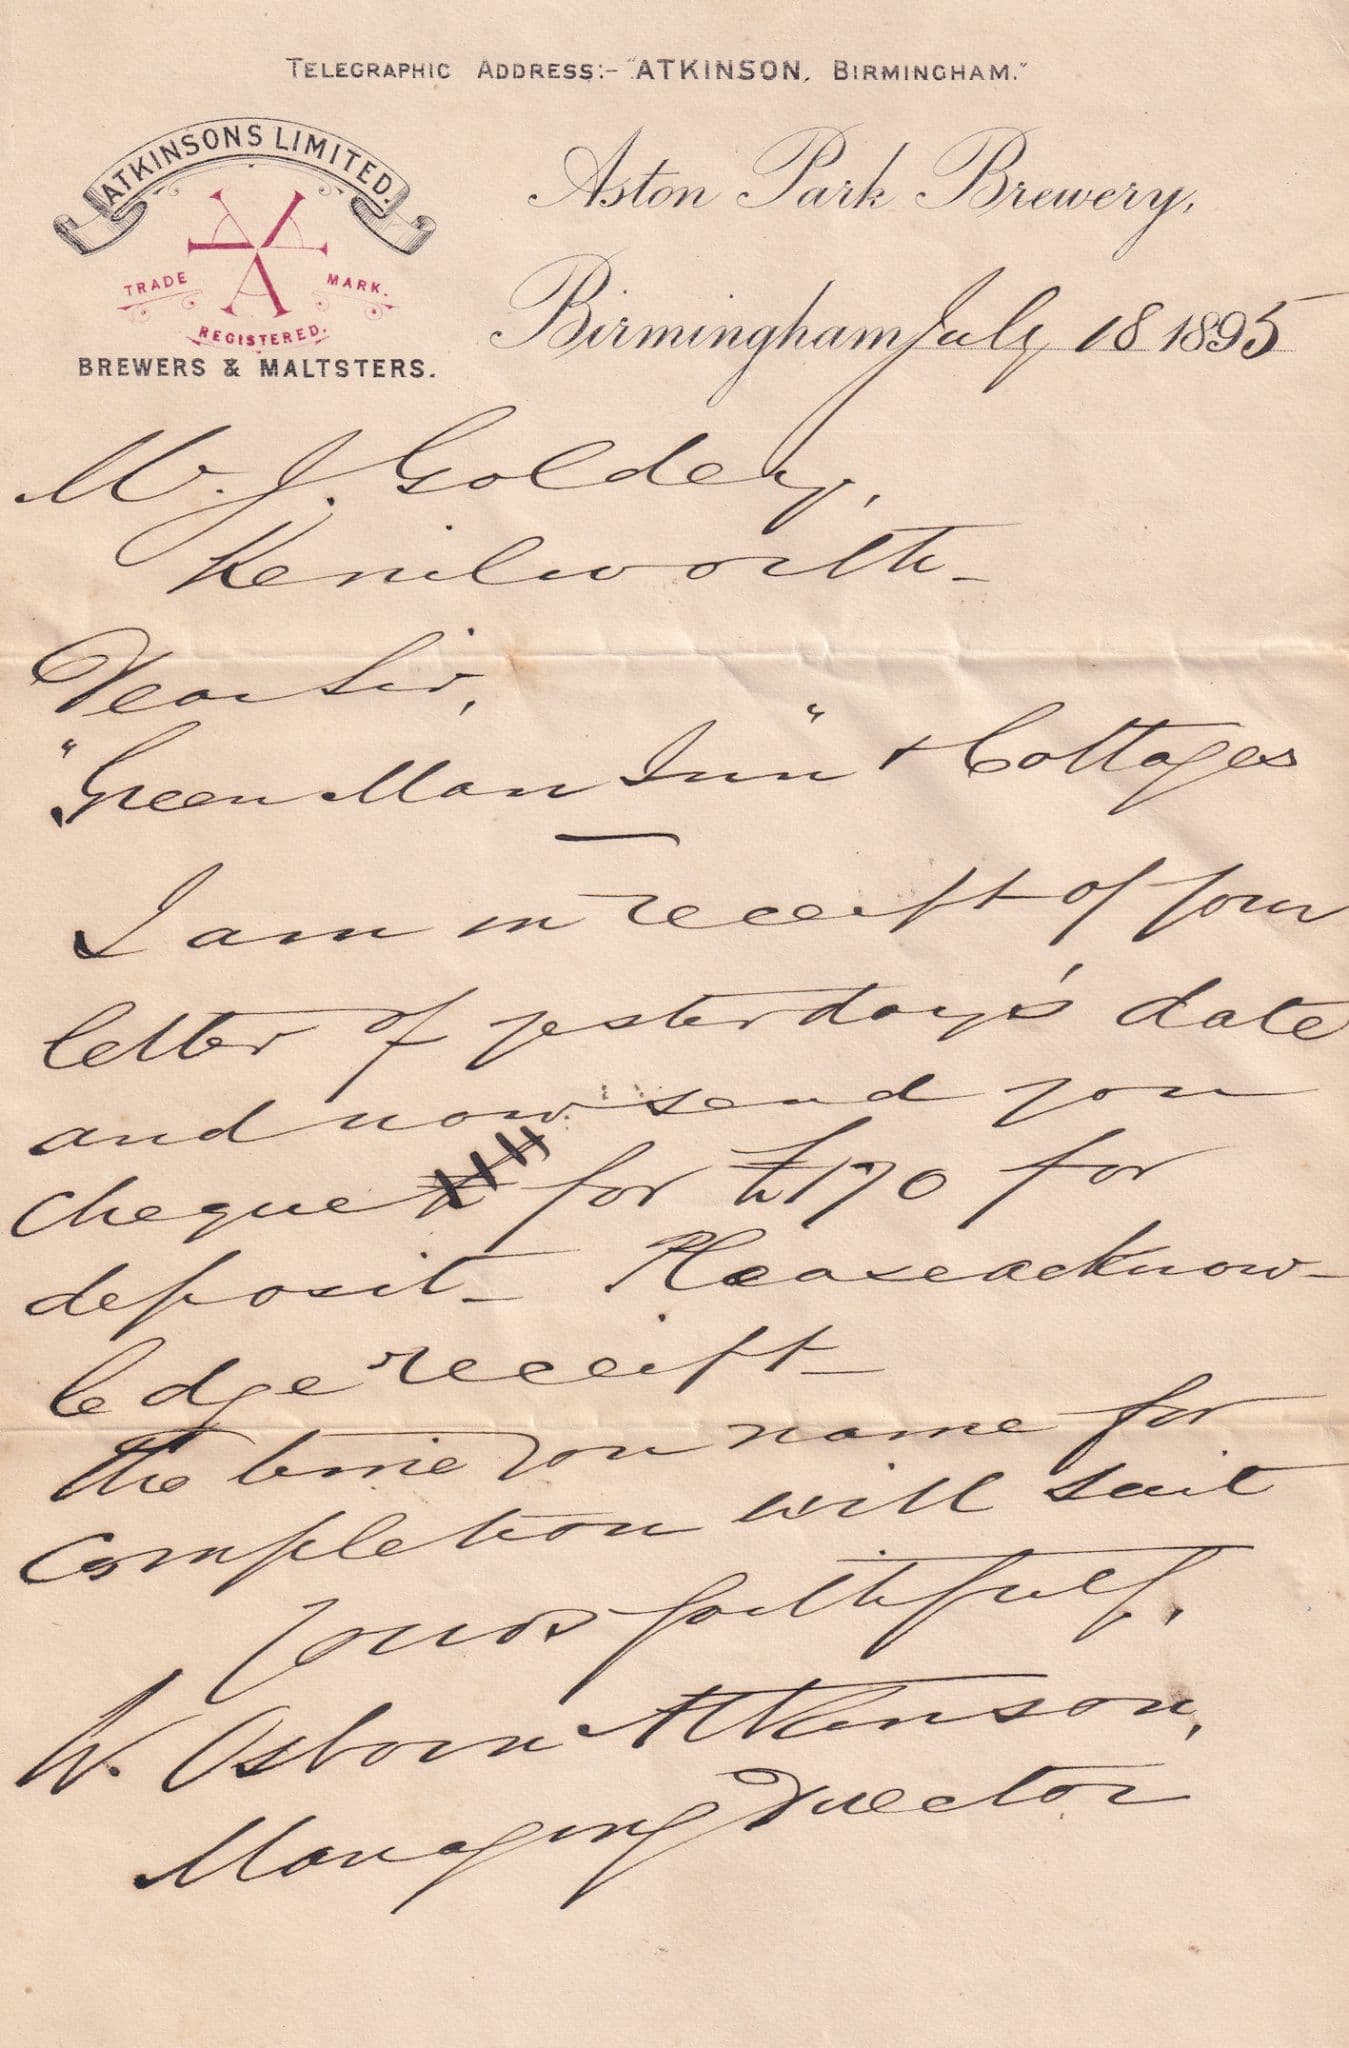 TELEGRAPHIC ADDRESS:- "ATKINSON, BIRMINGHAM."
ATKINSONS LIMITED.
TRADE MARK.
REGISTERED.
BREWERS & MALTSTERS.
Aston Park Brewery,
Birmingham July 18 1895
Mr. J. Golder,
Kenilworth_
Dear Sir,
"Green Man Inn" & Cottages
I am in receipt of your
letter of yesterday's date
and now send you
cheque for £170 for
deposit_ Please acknow-
ledge receipt_
The time you name for
completion will suit
Yours faithfully,
W. Osborn Atkinson,
Managing Director